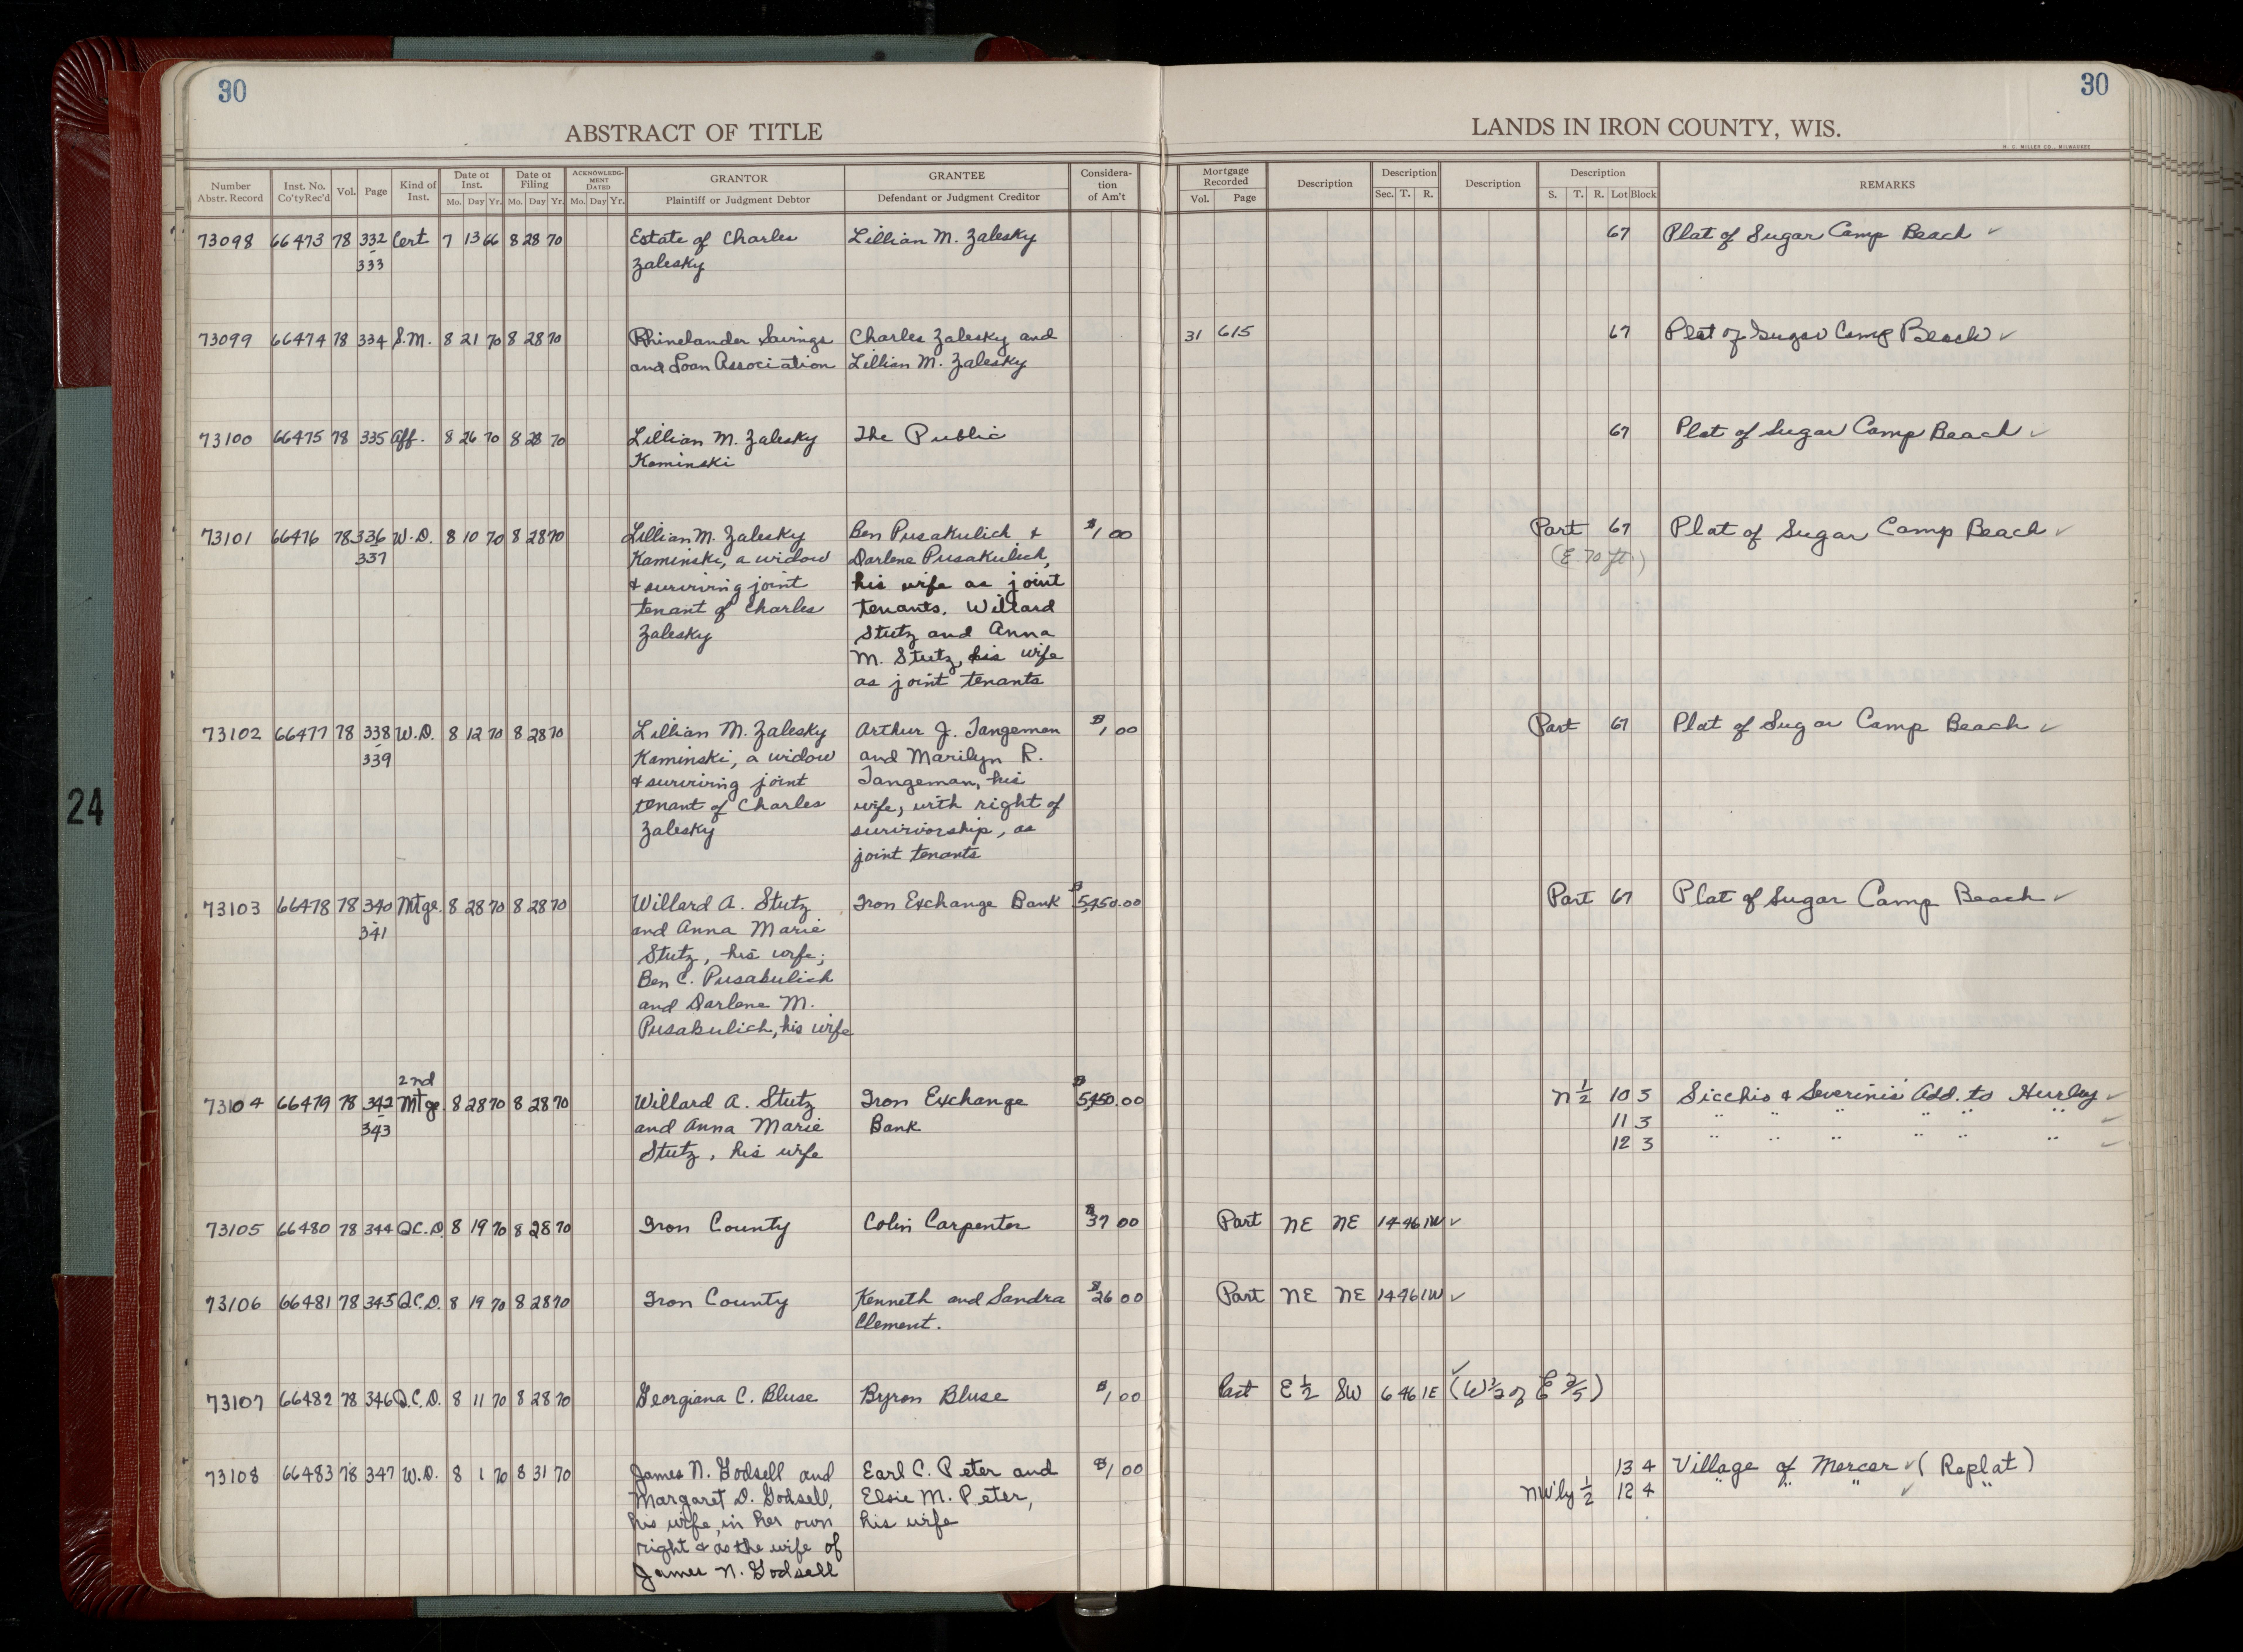 30
30
ABSTRACT OF TITLE
LANDS IN IRON COUNTY, WIS.
H. C. MILLER CO., MILWAUKEE
Number Abstr. Record | Inst. No. Co'ty Rec'd | Vol. | Page | Kind of Inst. | Date of Inst. Mo. Day Yr. | Date of Filing Mo. Day Yr. | ACKNOWLEDGMENT DATED Mo. Day Yr. | GRANTOR Plaintiff or Judgment Debtor | GRANTEE Defendant or Judgment Creditor | Consideration of Am't | Mortgage Recorded Vol. Page | Description | Description Sec. T. R. | Description | Description S. T. R. Lot Block | REMARKS
73098 66473 78 332 Cert 7 13 66 8 28 70 Estate of Charles Lillian M. Zalesky 67 Plat of Sugar Camp Beach ✓
333 Zalesky
73099 66474 78 334 S.M. 8 21 70 8 28 70 Rhinelander Savings Charles Zalesky and 31 615 67 Plat of Sugar Camp Beach ✓
and Loan Association Lillian M. Zalesky
73100 66475 78 335 Aff. 8 26 70 8 28 70 Lillian M. Zalesky The Public 67 Plat of Sugar Camp Beach ✓
Kaminski
73101 66476 78 336 W.D. 8 10 70 8 28 70 Lillian M. Zalesky Ben Pusakulich & $1 00 Part 67 Plat of Sugar Camp Beach ✓
337 Kaminski, a widow Darlene Pusakulich, (E. 70 ft.)
& surviving joint his wife as joint
tenant of Charles tenants. Willard
Zalesky Stutz and Anna
M. Stutz, his wife
as joint tenants
73102 66477 78 338 W.D. 8 12 70 8 28 70 Lillian M. Zalesky Arthur J. Tangeman $1 00 Part 67 Plat of Sugar Camp Beach ✓
339 Kaminski, a widow and Marilyn R.
& surviving joint Tangeman, his
tenant of Charles wife, with right of
Zalesky survivorship, as
joint tenants
73103 66478 78 340 Mtge. 8 28 70 8 28 70 Willard A. Stutz Iron Exchange Bank $5,450.00 Part 67 Plat of Sugar Camp Beach ✓
341 and Anna Marie
Stutz, his wife;
Ben C. Pusabulich
and Darlene M.
Pusabulich, his wife
2nd
73104 66479 78 342 Mtge 8 28 70 8 28 70 Willard A. Stutz Iron Exchange $5,450.00 N 1/2 10 5 Sicchio & Severinis' Add. to Hurley ✓
343 and Anna Marie Bank 11 3 " " " " " " ✓
Stutz, his wife 12 3 " " " " " " ✓
73105 66480 78 344 Q.C.D. 8 19 70 8 28 70 Iron County Colin Carpenter $37 00 Part NE NE 14 46 1W ✓
73106 66481 78 345 Q.C.D. 8 19 70 8 28 70 Iron County Kenneth and Sandra $26 00 Part NE NE 14 46 1W ✓
Clement.
73107 66482 78 346 Q.C.D. 8 11 70 8 28 70 Georgiana C. Bluse Byron Bluse $1 00 Part E 1/2 SW 6 46 1E ✓ (W 1/2 of E 2/5)
73108 66483 78 347 W.D. 8 1 70 8 31 70 James N. Godsell and Earl C. Peter and $1 00 13 4 Village of Mercer ✓ (Replat)
Margaret D. Godsell, Elsie M. Peter, NW'ly 1/2 12 4 " " " ✓ "
his wife, in her own his wife
right & as the wife of
James N. Godsell
24